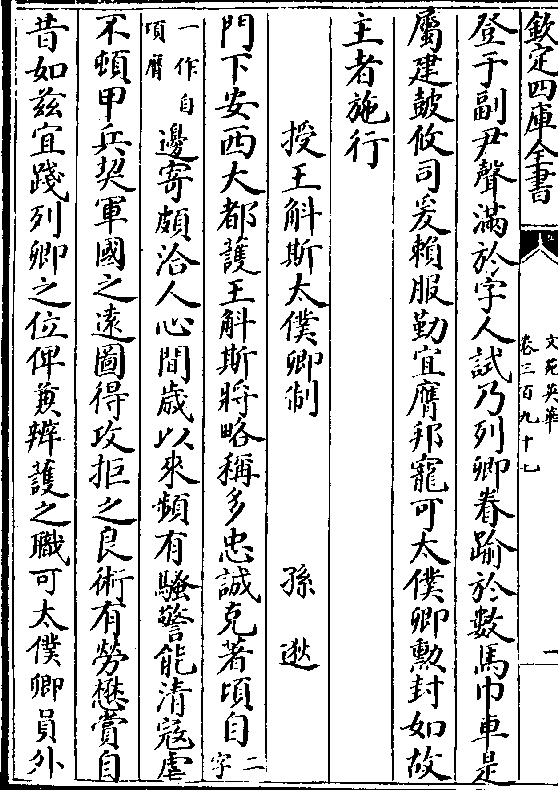 欽定四庫全書
文苑英華
卷三百九十七
一
登于副尹聲滿於字人試乃列卿眷踰於數馬巾車是
屬建鼓攸司爰賴服勤宜膺邦寵可太僕卿勲封如故
主者施行
授王斛斯太僕卿制 孫逖
門下安西大都護王斛斯將略稱多忠誠克著頃自二字
一作自項膺邊寄頗洽人心間歲以來頻有騷警能清寇虐
不頓甲兵契軍國之遠圖得攻拒之良術有勞懋賞自
昔如兹宜踐列卿之位俾兼辨護之職可太僕卿員外